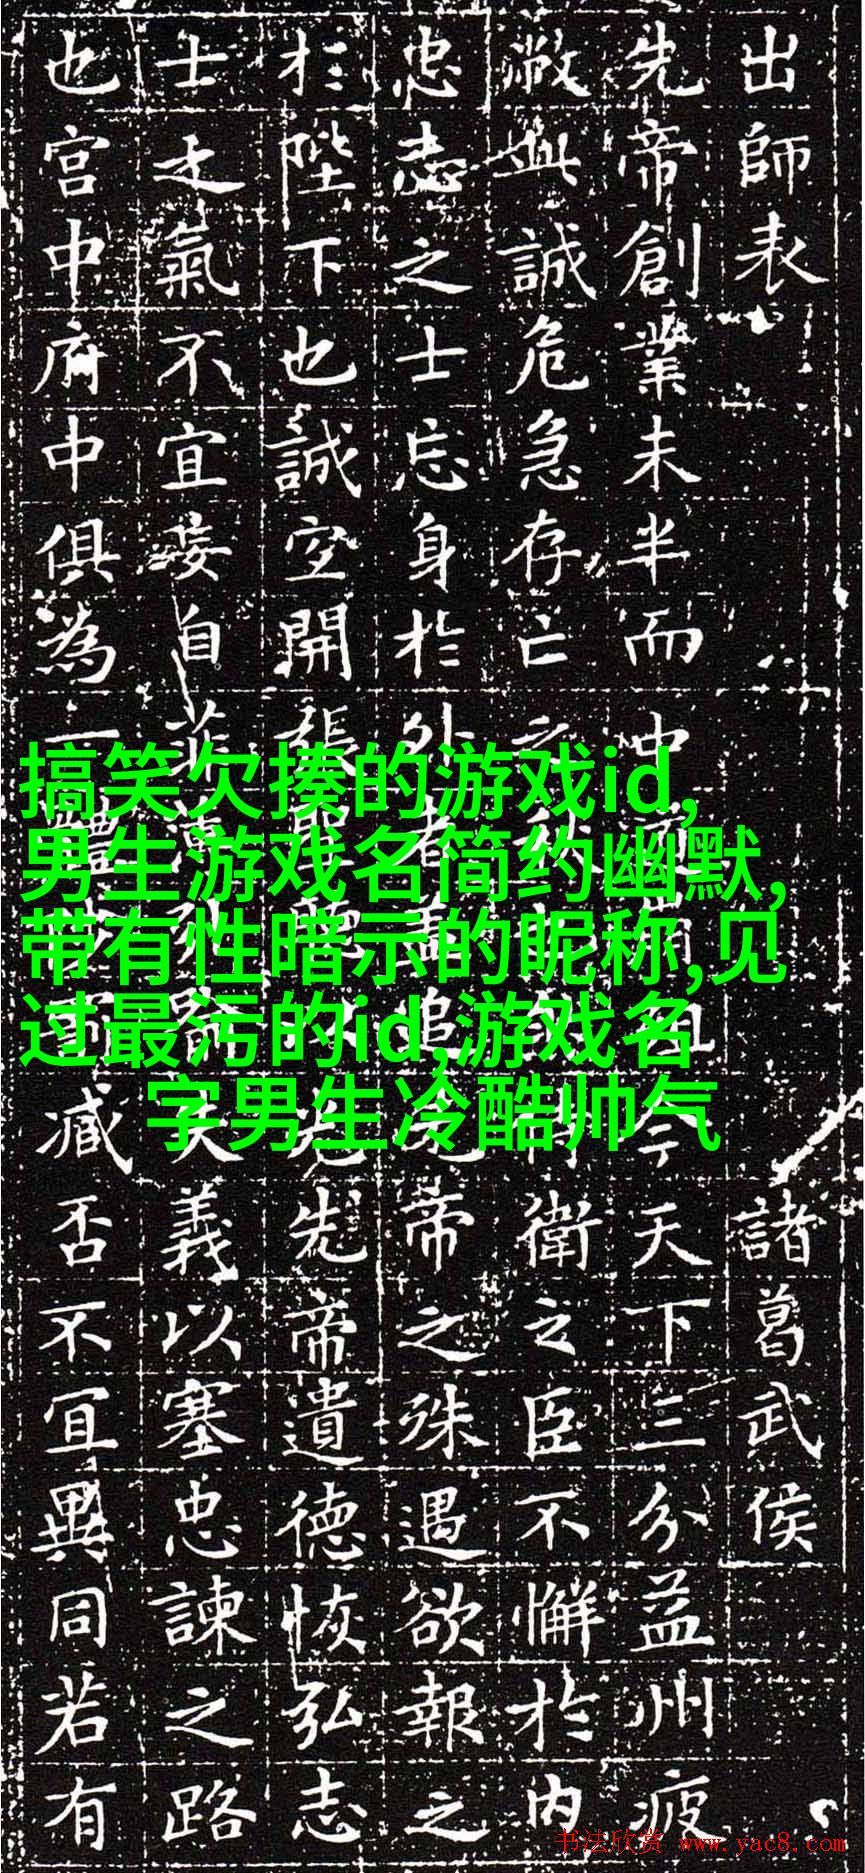 出師表
諸葛武侯
先帝創業未半而中
今天下三分益州疲
敝此誠危急存亡之秋
衛之臣不懈於內
忠志之士忘身於外者蓋追先帝之殊遇欲報之
於陛下也誠宜開張
光先帝遺德恢弘志
士之氣不宜妄自菲薄
失義以塞忠諫之路
也宮中府中俱為一體
臧否不宜異同若有
搞笑欠揍的游戏id,
男生游戏名简约幽默,
带有性暗示的昵称,见
过最污的id,游戏名
字男生冷酷帅气
书法欣赏 www.yac8.com